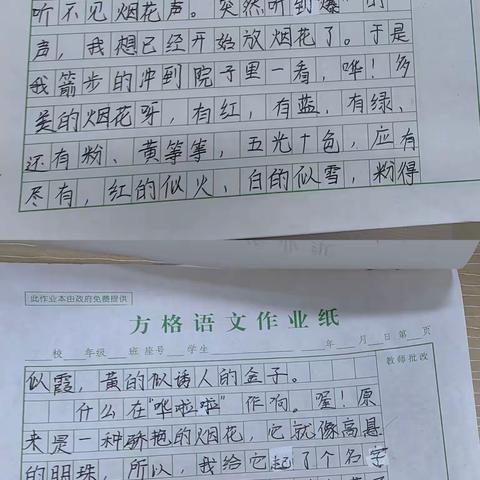 听不见烟花声。突然听到"爆"的
声，我想已经开始放烟花了。于是
我箭步的冲到院子里一看，哗！多
美的烟花呀，有红，有蓝，有绿、
还有粉、黄等等，五光十色，应有
尽有，红的似火、白的似雪，粉得
此作业本由政府免费提供
方格语文作业纸
校 年级 班 座号 学生 年 月 日 第 页
似霞，黄的似诱人的金子。
教师批改
什么在"哗啦啦"作响。喔！原
来是一种骄艳的烟花，它就像高悬
的明珠，所以，我给它起了个名字